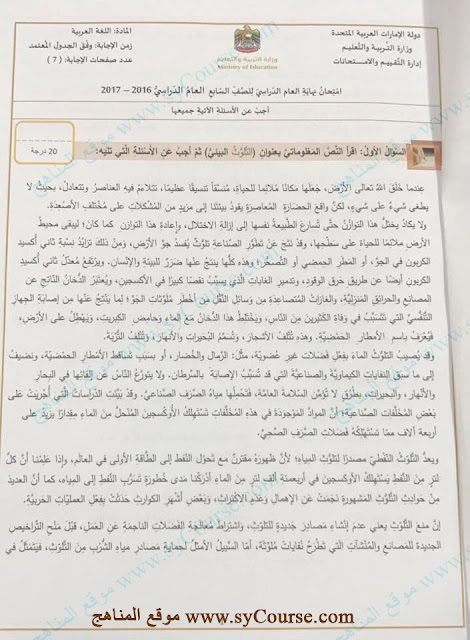 دولة الإمارات العربية المتحدة
وزارة التربية والتعليم
إدارة التقييم والامتحانات
وزارة التربية والتعليم
Ministry of Education
المادة: اللغة العربية
زمن الإجابة: وفق الجدول المعتمد
عدد صفحات الإجابة: ( 7 )
امتحان نهاية العام الدراسي للصف السابع العام الدراسي 2016 – 2017
أجب عن الأسئلة الآتية جميعها
السؤال الأول: اقرأ النص المعلوماتي بعنوان (التلوث البيئي) ثم أجب عن الأسئلة التي تليه:
20 درجة
عندما خلق الله تعالى الأرض، جعلها مكانا ملائما للحياة، منسقا تنسيقا عظيما، تتلاءم فيه العناصر وتتعادل، بحيث لا
يطغى شيء على شيء، لكن واقع الحضارة المعاصرة يقود بيئتنا إلى مزيد من المشكلات على مختلف الأصعدة.
ولا يكاد يختل هذا التوازن حتى تسارع الطبيعة نفسها إلى إزالة الاختلال، وإعادة هذا التوازن كما كان؛ ليبقى محيط
الأرض ملائما للحياة على سطحها، وقد نتج عن تطور الصناعة تلوث يفسد جو الأرض، ومن ذلك تزايد نسبة ثاني أكسيد
الكربون في الجو، أو المطر الحمضي أو التصحر؛ وهذه كلها ينتج عنها ضرر للبيئة والإنسان. ويرتفع معدل ثاني أكسيد
الكربون أيضا عن طريق حرق الوقود، وتدمير الغابات الذي يسبب نقصا كبيرا في الأكسجين، ويعتبر الدخان الناتج عن
المصانع والحرائق المنزلية، والغازات المتصاعدة من وسائل النقل من أخطر ملوثات الجو؛ لما ينتج عنها من إصابة الجهاز
التنفسي التي تتسبب في وفاة الكثيرين من الناس، ويختلط هذا الدخان مع الماء وحامض الكبريت، ويهطل على الأرض،
فيعرف باسم الأمطار الحمضية. وهذه تتلف الأشجار، وتسمم البحيرات والأنهار، وتتلف التربة.
وقد يصيب التلوث الماء بفعل فضلات غير عضوية، مثل: الرمال والخضار، أو بسبب تساقط الأمطار الحمضية، ونضيف
إلى ما سبق النفايات الكيماوية والصناعية التي قد تسبب الإصابة بالسرطان. ولا يتورع الناس عن إلقائها في البحار
والأنهار، والبحيرات، بطرق لا تؤمن السلامة العامة، فتحملها مياه الصرف الصناعي. وقد بينت الدراسات التي أجريت على
بعض المخلفات الصناعية؛ أن المواد الموجودة في هذه المخلفات تستهلك الأوكسجين المنحل من الماء مقدارا يزيد على
أربعة آلاف مما تستهلكه فضلات الصرف الصحي.
ويعد التلوث النفطي مصدرا لتلوث المياه؛ لأن ظهوره مقترن مع تحول النفط إلى الطاقة الأولى في العالم، وإذا علمنا أن كل
لتر من النفط يستهلك الأوكسجين في أربعمئة ألف لتر من الماء أدركنا مدى خطورة تسرب النفط إلى المياه، كما أن العديد
من حوادث التلوث المشهورة نجمت عن الإهمال وعدم الاكتراث، وبعض أشهر الكوارث حدثت بفعل العمليات الحربية.
إن منع التلوث يعني عدم إنشاء مصادر جديدة للتلوث، واشتراط معالجة الفضلات الناجمة عن العمل، قبل منح التراخيص
الجديدة للمصانع والمنشآت التي تطرح نفايات ملوثة، أما السبيل الأمثل لحماية مصادر مياه الشرب من التلوث، فيتمثل في
موقع المناهج www.syCourse.com موقع المناهج